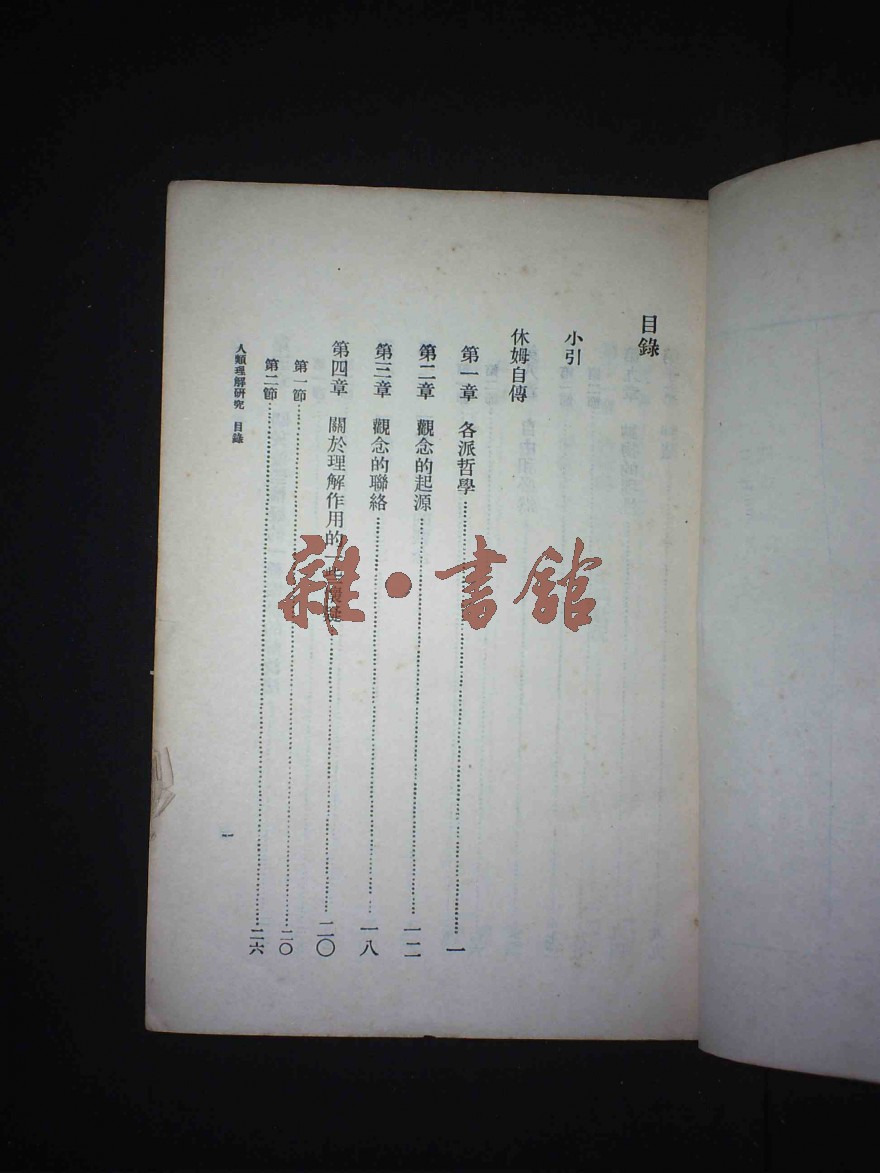 目錄
小引
休姆自傳
第一章 各派哲學……一
第二章 觀念的起源……一二
第三章 觀念的聯絡……一八
第四章 關於理解作用的一些懷疑……二〇
第一節……二〇
第二節……二六
人類理解研究 目錄
一
雜·書館